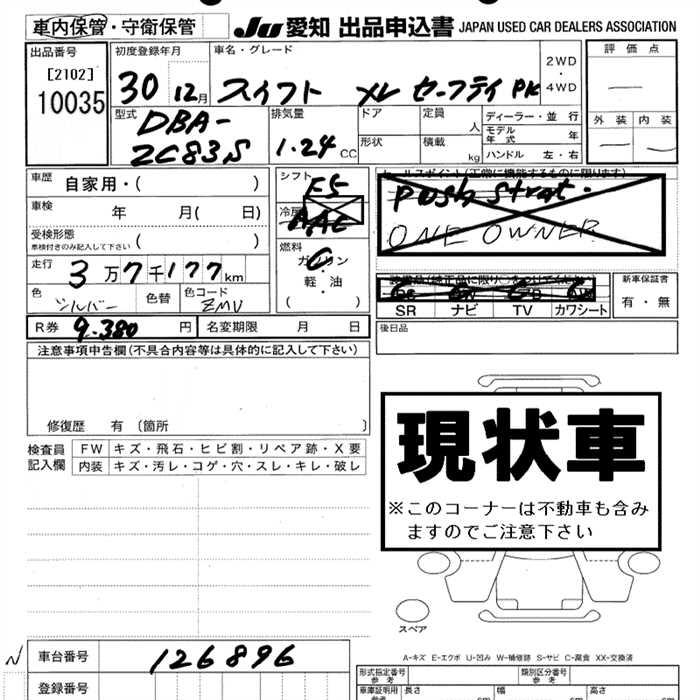 車内保管・守衛保管 JU愛知 出品申込書 JAPAN USED CAR DEALERS ASSOCIATION
出品番号
[2102]
10035
初度登録年月
30 12月
車名・グレード
スイフト XL セーフティPK
2WD
・
4WD
評価点
外装 内装
型式
DBA-
ZC83S
排気量
1.24 CC
ドア
形状
定員 人
積載 kg
ディーラー・並行
モデル年式 年
ハンドル 左・右
車歴 自家用・( )
車検 年 月( 日)
受検形態
車検付きのみ記入して下さい ( )
走行 3万7千177km
色 シルバー 色替 色コード ZMV
R券 9.380円 名変期限 月 日
シフト
F5
冷房
AAC
燃料
ガソリン
・
軽・油
( )
セールスポイント(正常に機能するものに限ります)
Push Strat.
ONE OWNER
装備品(純正品に限り○をつけてください)
SR ナビ TV カワシート
新車保証書
有・無
後日品
注意事項申告欄(不具合内容等は具体的に記入して下さい)
修復歴 有 〔箇所 〕
検査員
記入欄
FW キズ・飛石・ヒビ割・リペア跡・X要
内装 キズ・汚レ・コゲ・穴・スレ・キレ・破レ
現状車
※このコーナーは不動車も含み
ますのでご注意下さい
スペア
A-キズ E-エクボ U-凹み W-補修跡 S-サビ C-腐食 XX-交換済
車台番号 126896
登録番号
形式指定番号
参考
類別区分番号
参考
車庫証明用
参考
長さ cm
幅 cm
高さ cm